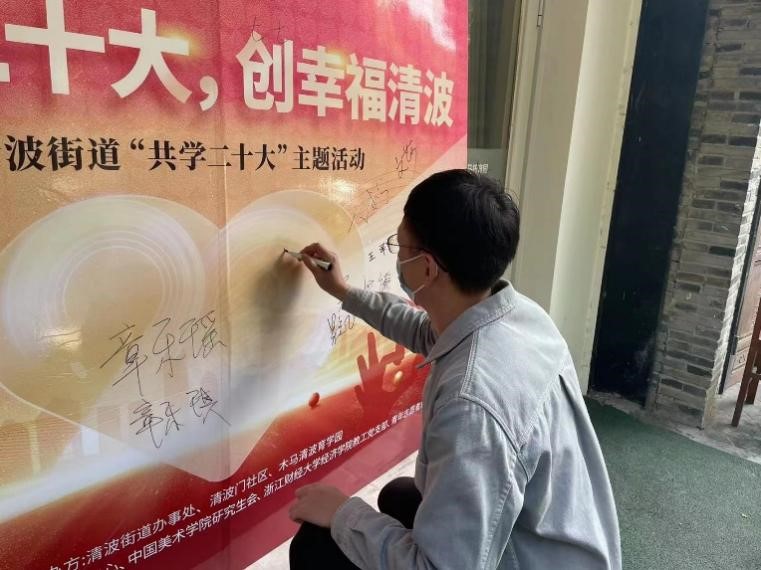 二十大，创幸福清波
波街道“共学二十大”主题活动
王
章乐瑶
章乐琪
办方:清波街道办事处、清波门社区、木马清波育学园
心、中国美术学院研究生会、浙江财经大学经济学院教工党支部、青年志愿者